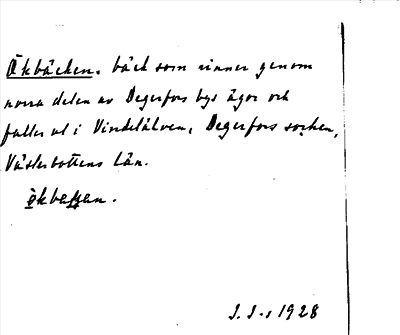 Åkbäcken. bäck som rinner genom
norra delen av Degerfors bys ägor och
faller ut i Vindelälven, Degerfors socken,
Västerbottens län.
J. S. 1928